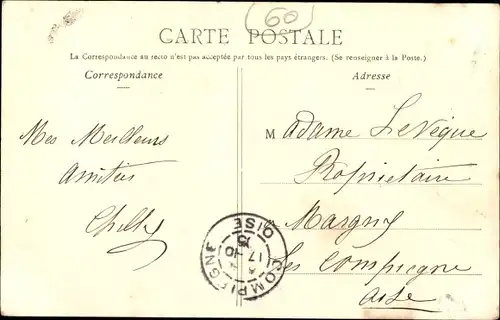 60
CARTE POSTALE
La Correspondance au recto n'est pas acceptée par tous les pays étrangers. (Se renseigner à la Poste.)
Correspondance
Adresse
Mes Meilleurs
Amitiés
Madame Levêque
Propriétaire
Margny
Les Compiegne
COMPIEGNE
17 -10
OISE